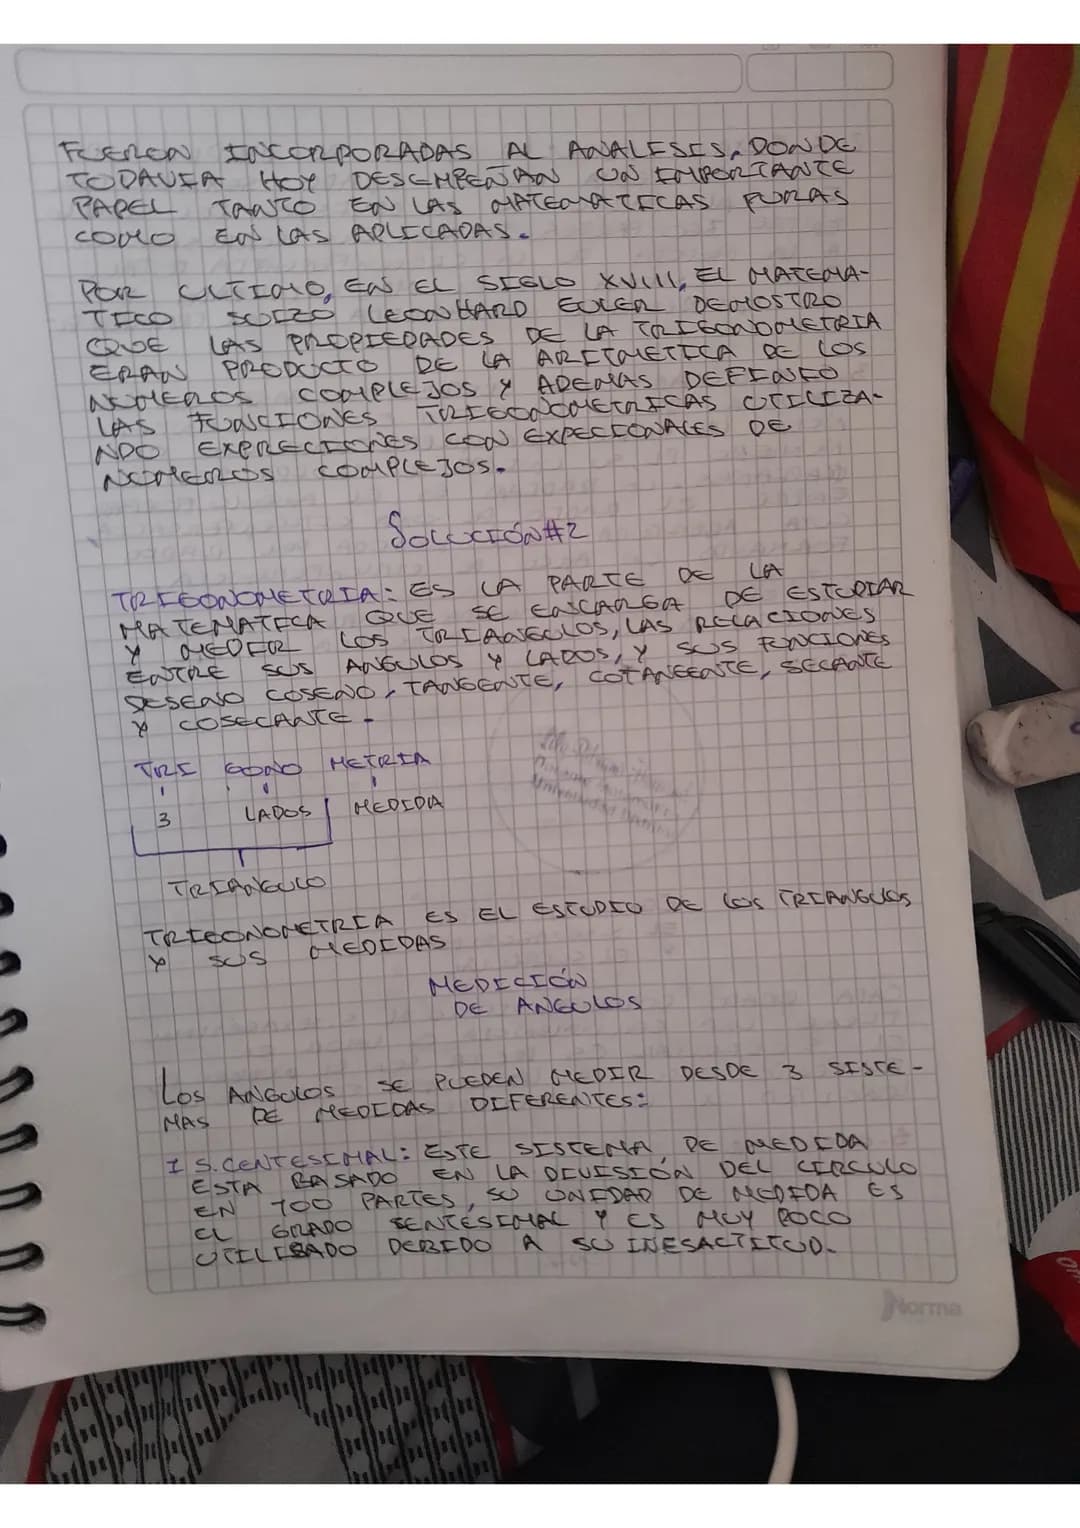 FUEREN INCORPORADAS AL ANALESIS, DONDE
TODAVIA HOY DESEMPEÑAN UN IMPORTANTE
PAPEL TANTO EN LAS MATEMATICAS PURAS
COMO EN LAS APLICADAS.
POR ULTIMO, EN EL SIGLO XVIII, EL MATEMA-
TICO SUIZO LEONHARD EULER DEMOSTRO
QUE LAS PROPIEDADES DE LA TRIGONOMETRIA
ERAN PRODUCTO DE LA ARITMETICA DE LOS
NUMEROS COMPLEJOS Y ADEMAS DEFINIO
LAS FUNCIONES TRIGONOMETRICAS UTILIZA-
NDO EXPRECIONES CON EXPECIONALES DE
NUMEROS COMPLEJOS.
SOLUCIÓN #2
TRIGONOMETRIA: ES LA PARTE DE LA
MATEMATICA QUE SE ENCARGA DE ESTUDIAR
Y MEDIR LOS TRIANGULOS, LAS RELACIONES
ENTRE SUS ANGULOS Y LADOS, Y SUS FUNCIONES
DESENO COSENO, TANGENTE, COTANGENTE, SECANTE
Y COSECANTE.
TRI GONO METRIA
3 LADOS MEDIDA
TRIANGULO
TRIGONOMETRIA ES EL ESTUDIO DE LOS TRIANGULOS
Y SUS MEDIDAS
MEDICIÓN
DE ANGULOS
LOS ANGULOS SE PUEDEN MEDIR DESDE 3 SISTE-
MAS DE MEDIDAS DIFERENTES:
1 S. CENTESIMAL: ESTE SISTEMA DE MEDIDA
ESTA BASADO EN LA DIVISIÓN DEL CIRCULO
EN 400 PARTES, SU UNIDAD DE MEDIDA ES
EL GRADO SENTESIMAL Y ES MUY POCO
UTILISADO DEBIDO A SU INESACTITUD.
Norma